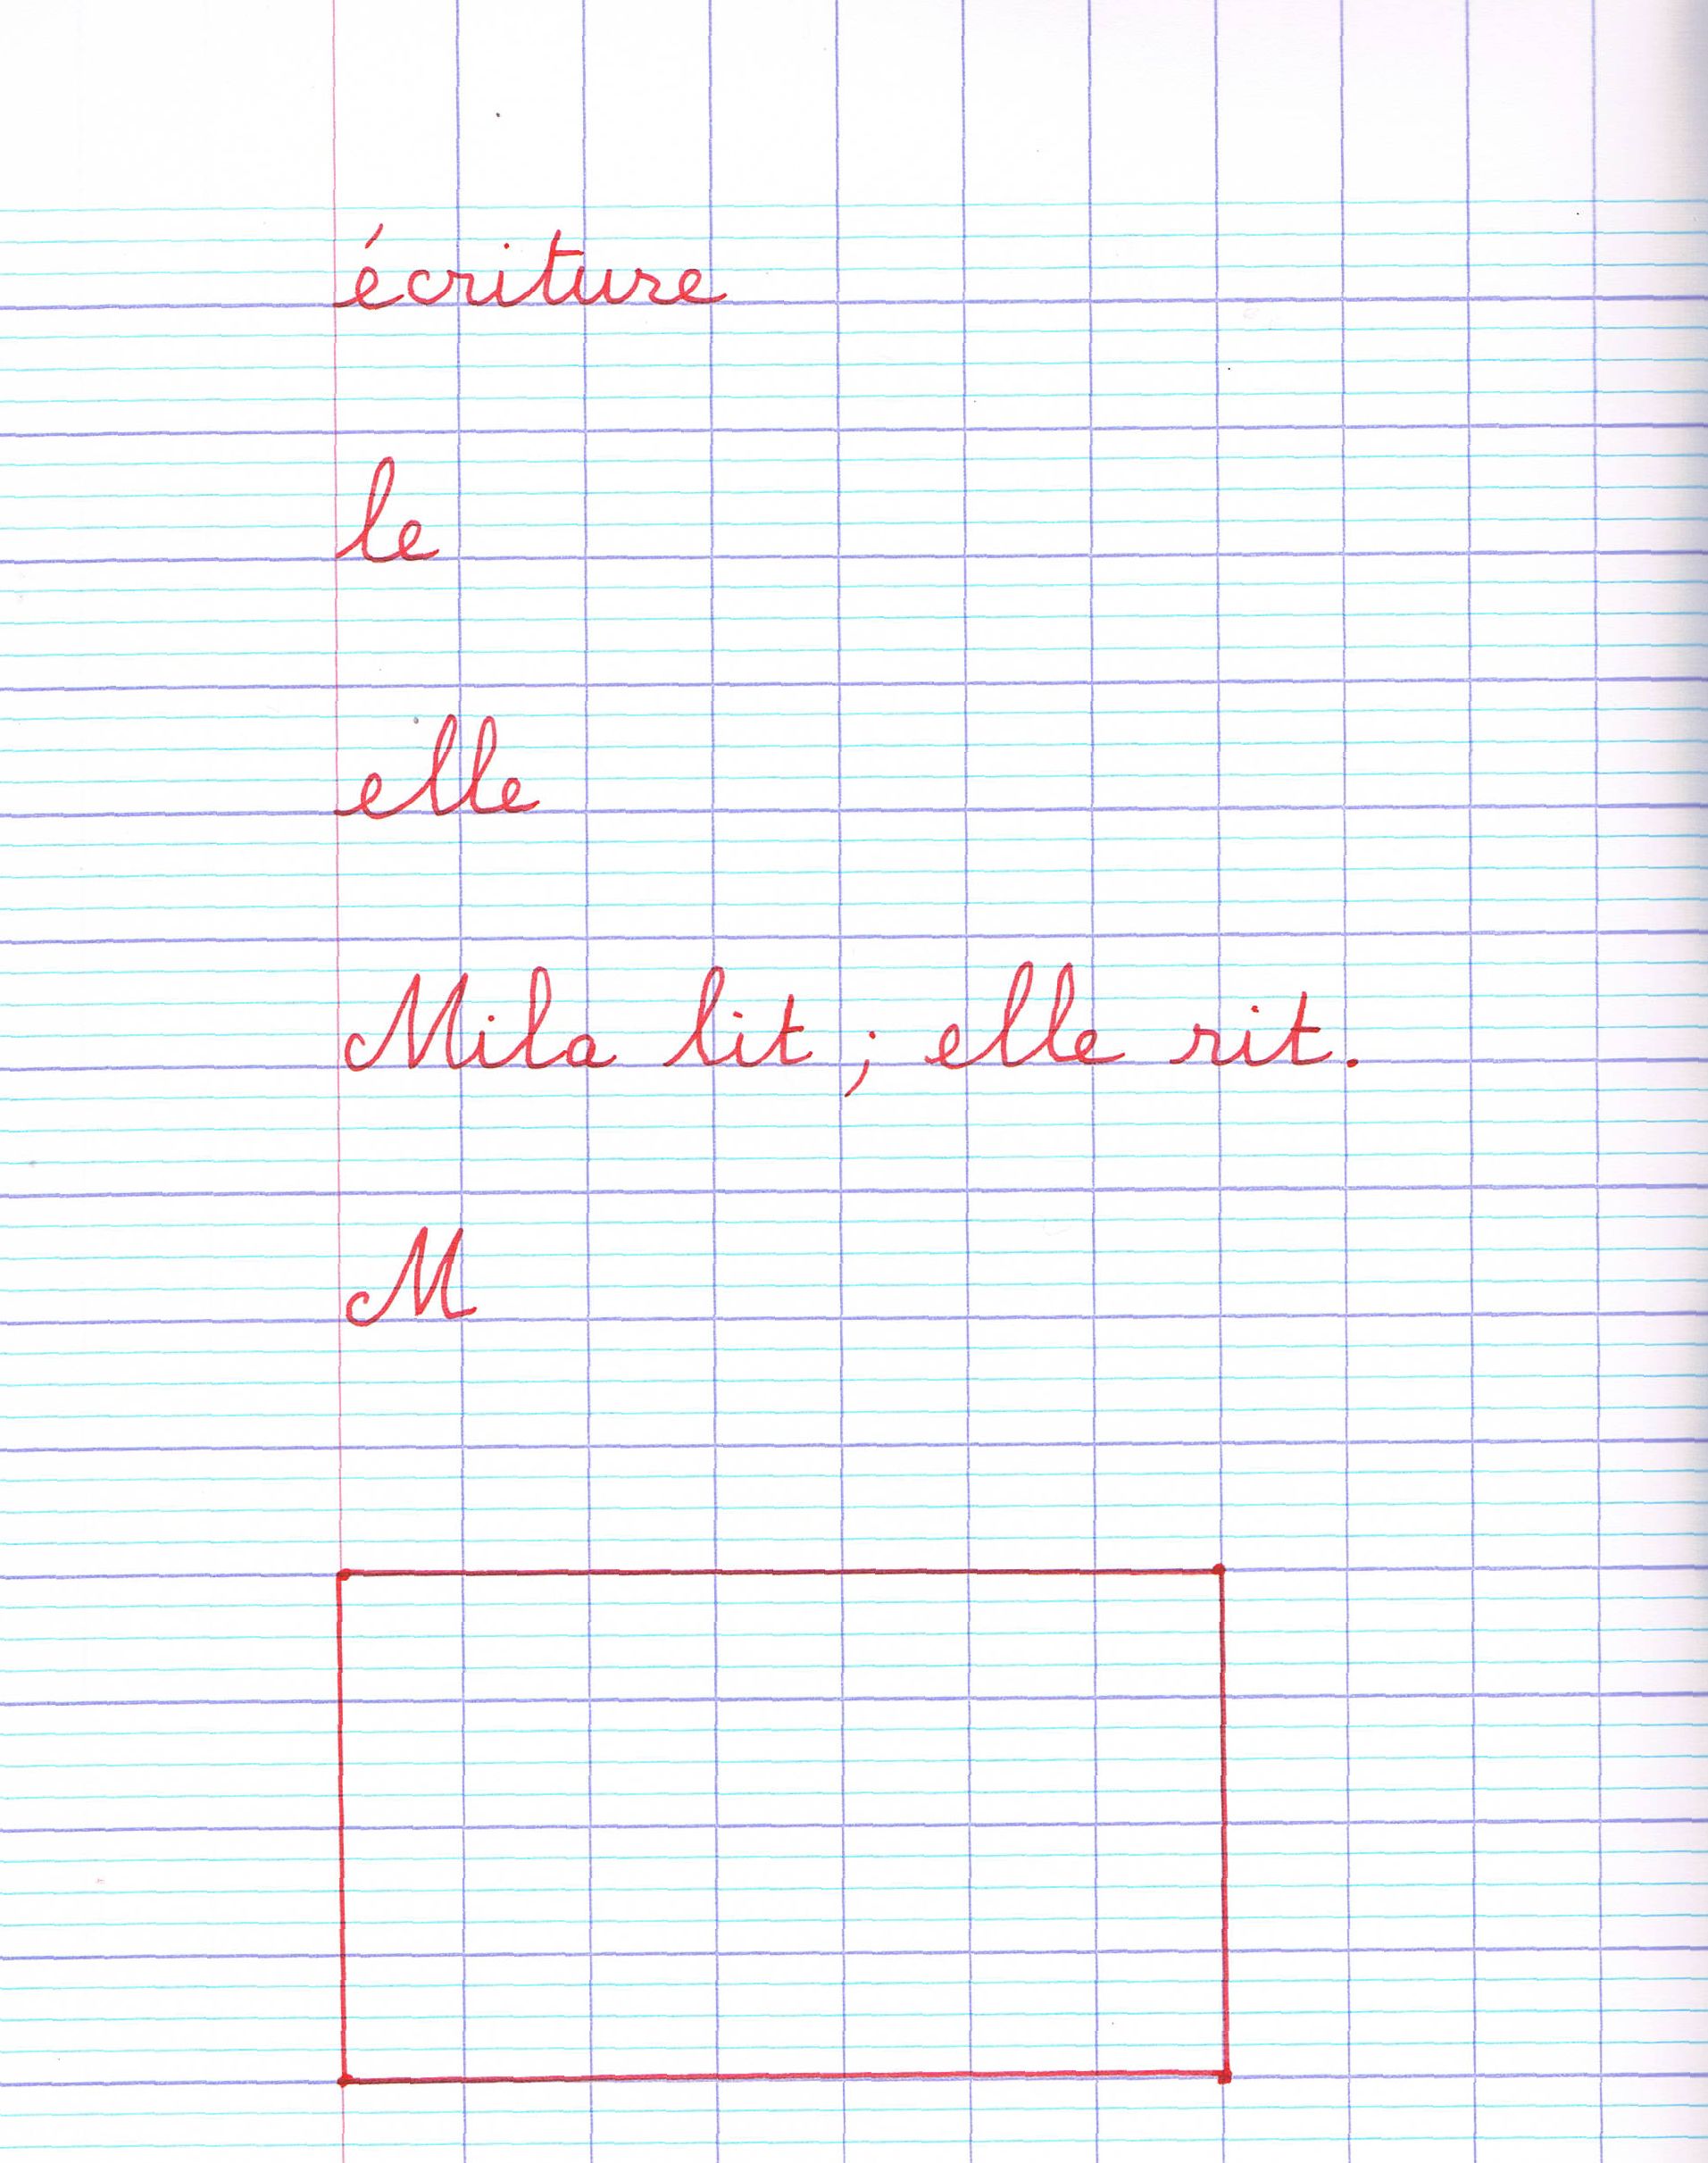 écriture
le
elle
Mila lit ; elle rit.
M